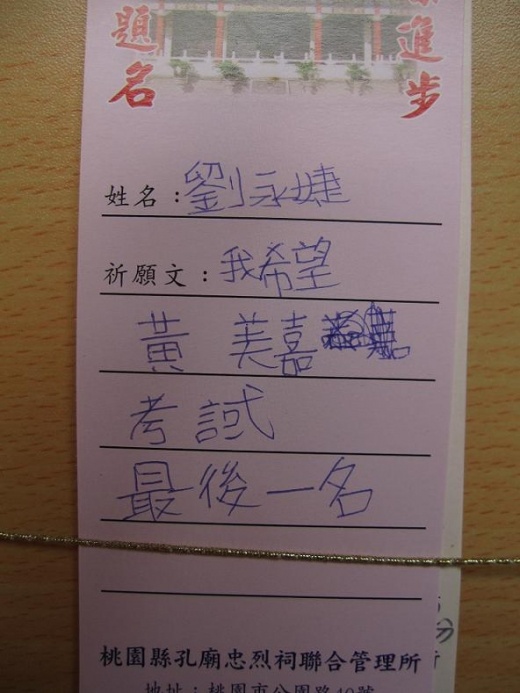 題名
進步
姓名：劉永婕
祈願文：我希望
黃美嘉
考試
最後一名
桃園縣孔廟忠烈祠聯合管理所
地址：桃園市公園路42號